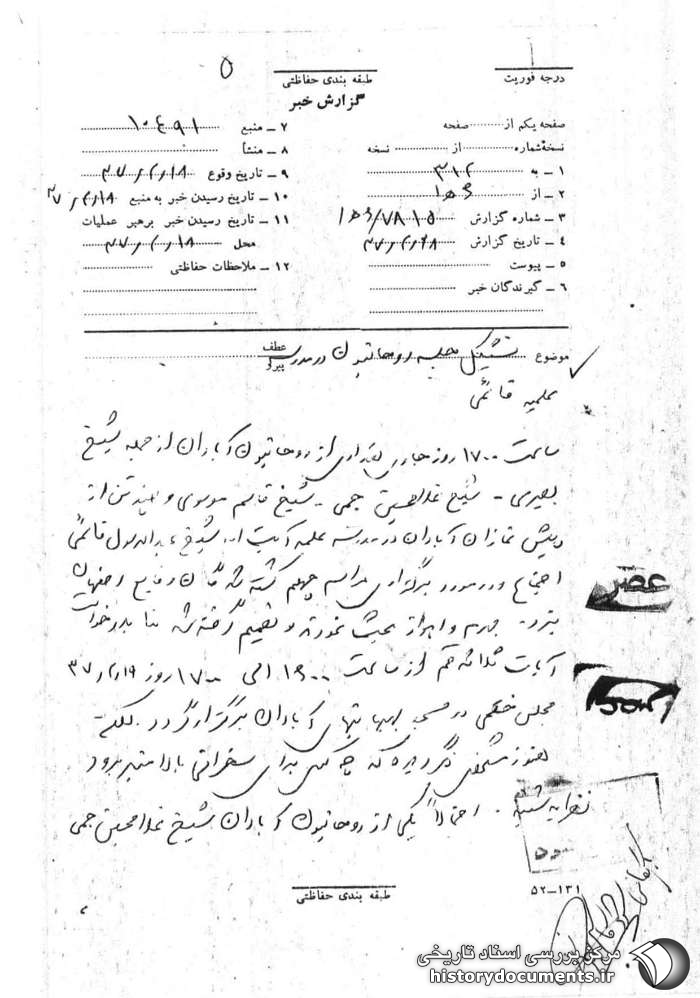 ۵
درجه فوریت
طبقه بندی حفاظتی
گزارش خبر
صفحه یکم از صفحه
نسخه شماره از نسخه
۱ - به ۳۱۲
۲ - از ۶ ه‍ ۱
۳ - شماره گزارش ۷۸۱۵/ ۶ ه‍ ۱
۴ - تاریخ گزارش
۵ - پیوست
۶ - گیرندگان خبر
۷ - منبع ۱۰۴۹۱
۸ - منشأ
۹ - تاریخ وقوع ۳۷/۲/۱۸
۱۰ - تاریخ رسیدن خبر به منبع ۳۷/۲/۱۸
۱۱ - تاریخ رسیدن خبر برهبر عملیات
محل ۳۷/۲/۱۸
۱۲ - ملاحظات حفاظتی
موضوع تشکیل جلسه روحانیون در مدرسه
عطف
پیرو
علمیه قائمی
ساعت ۱۷۰۰ روز جاری تعدادی از روحانیون آبادان از جمله شیخ
بصیری - شیخ غلامحسین جمی - شیخ قاسم موسوی و چند تن از
پیش نمازان آبادان در مدرسه علمیه آیت اله شیخ عبدالرسول قائمی
اجتماع و در مورد برگزاری مراسم چهلم کشته شدگان وقایع اصفهان
یزد - جهرم و اهواز بحث نموده و تصمیم گرفته شد بنا بدرخواست
آیات ثلاثه قم از ساعت ۱۶۰۰ الی ۱۷۰۰ روز ۳۷/۲/۱۹
مجلس ختمی در مسجد بهبهانیهای آبادان برگزار گردد. لکن
هنوز مشخص نگردیده که چه کسی برای سخنرانی بالا منبر برود
نظریه شنبه . احتمالاً یکی از روحانیون آبادان شیخ غلامحسین جمی
طبقه بندی حفاظتی
۵۲-۱۳۱
مرکز بررسی اسناد تاریخی
historydocuments.ir